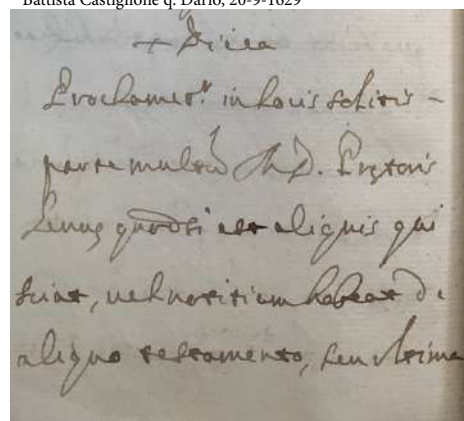 Battista Castiglione q. Dario,
+ Die ea
Proclamet.r in locis solitis -
parte D. Pretoris
quod si est aliquis qui
sciat, vel notitiam habeat de
aliquo testamento, seu ultima